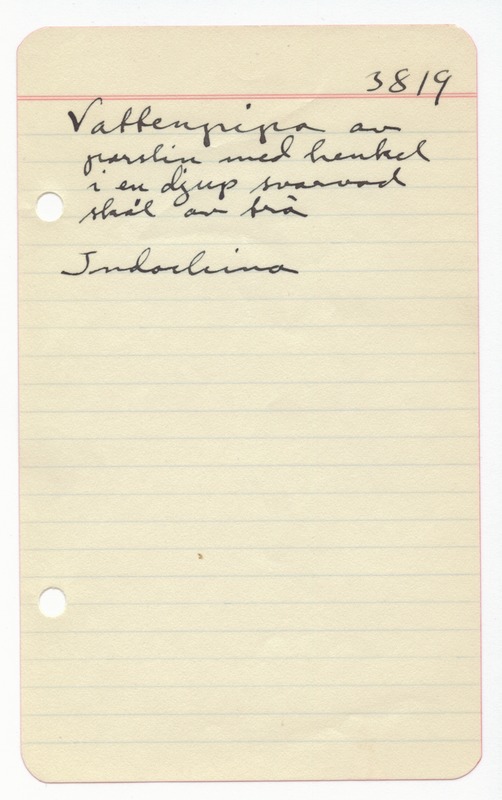 3819
Vattenpipa av
porslin med henkel
i en djup svarvad
skål av trä
Indochina